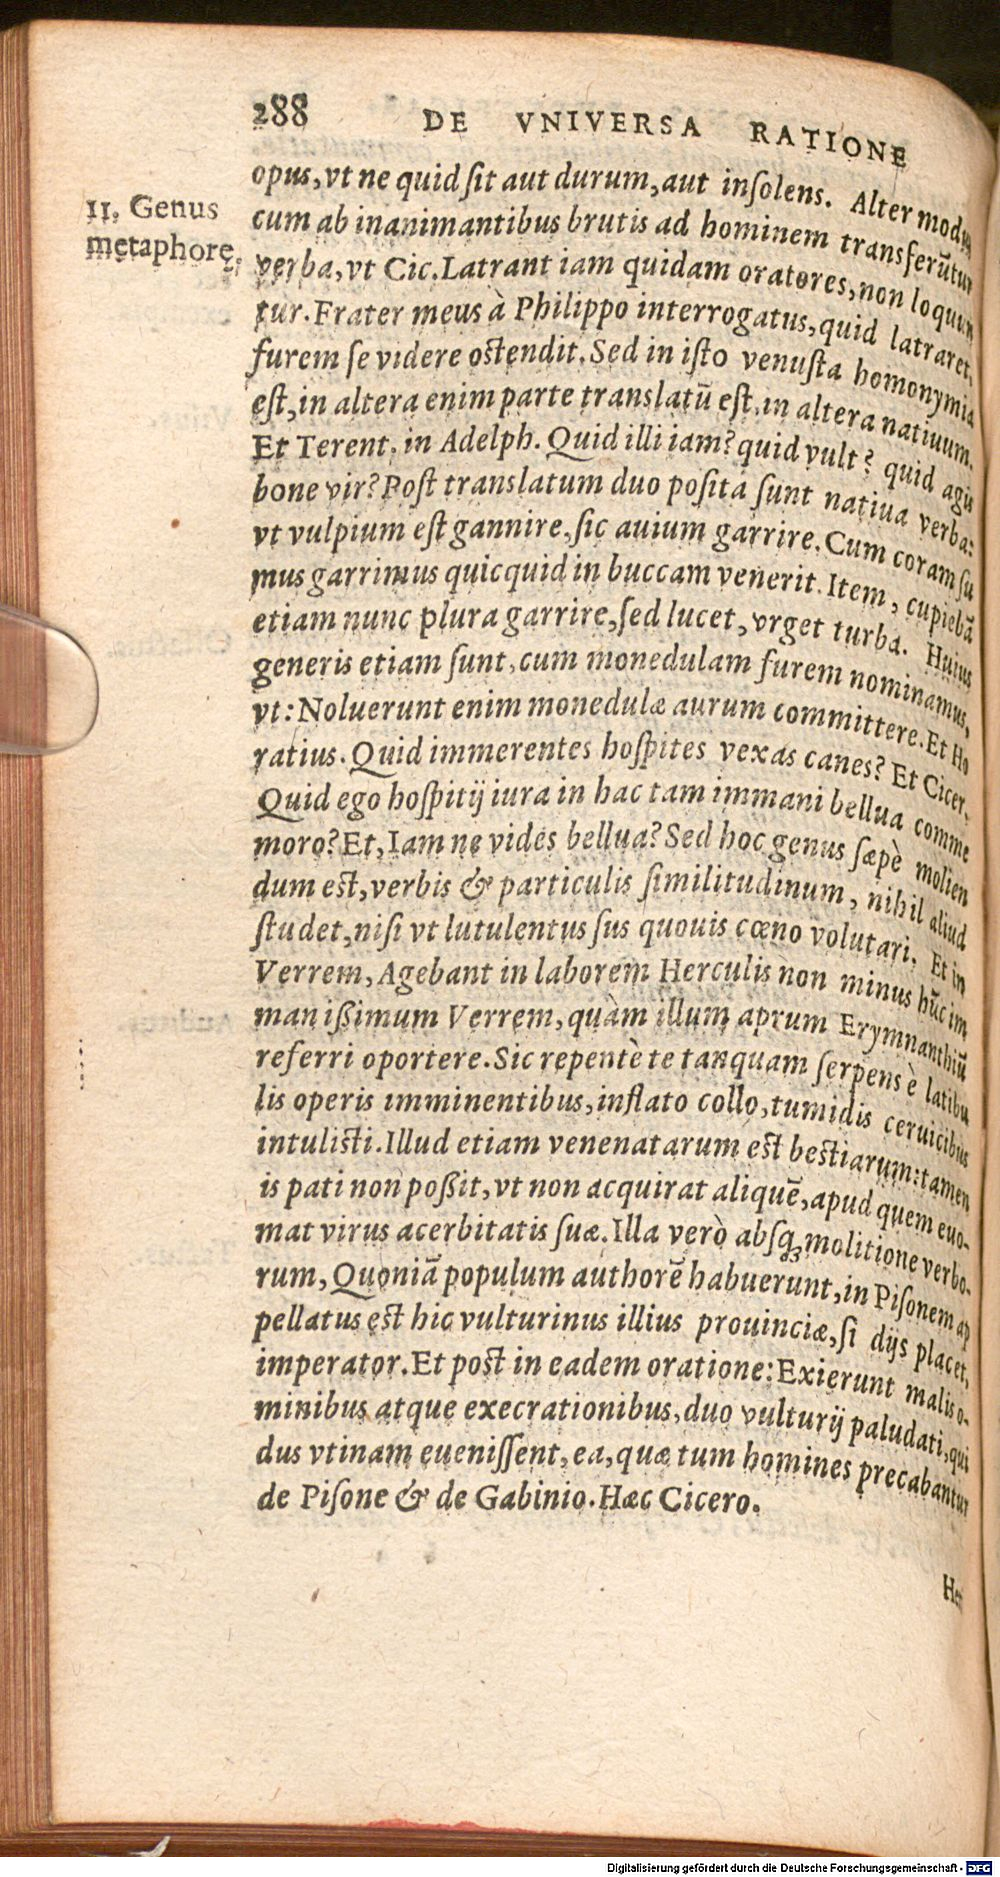 288 DE VNIVERSA RATIONE
opus, vt ne quid ſit aut durum, aut inſolens. Alter modus
11. Genus metaphorę.
cum ab inanimantibus brutis ad hominem transferũtur
verba, vt Cic. Latrant iam quidam oratores, non loquun
tur. Frater meus à Philippo interrogatus, quid latraret,
furem ſe videre oſtendit. Sed in iſto venuſta homonymia
eſt, in altera enim parte translatũ eſt, in altera natiuum.
Et Terent. in Adelph. Quid illi iam? quid vult? quid agis
bone vir? Poſt translatum duo poſita ſunt natiua verba:
vt vulpium eſt gannire, ſic auium garrire. Cum coram ſu
mus garrimus quicquid in buccam venerit. Item, cupiebã
etiam nunc plura garrire, ſed lucet, vrget turba. Huius
generis etiam ſunt, cum monedulam furem nominamus,
vt: Noluerunt enim monedulæ aurum committere. Et Ho
ratius. Quid immerentes hoſpites vexas canes? Et Cicer.
Quid ego hoſpitij iura in hac tam immani bellua comme
moro? Et, Iam ne vides bellua? Sed hoc genus ſæpè molien
dum eſt, verbis & particulis ſimilitudinum, nihil aliud
ſtudet, niſi vt lutulentus ſus quouis cœno volutari. Et in
Verrem, Agebant in laborem Herculis non minus hũc im
maniſſimum Verrem, quàm illum aprum Erymnanthiũ
referri oportere. Sic repentè te tanquam ſerpens è latibu
lis operis imminentibus, inflato collo, tumidis ceruicibus
intuliſti. Illud etiam venenatarum eſt beſtiarum: tamen
is pati non poßit, vt non acquirat aliquẽ, apud quem euo-
mat virus acerbitatis ſuæ. Illa verò abſq; molitione verbo-
rum, Quoniã populum authorẽ habuerunt, in Piſonem ap
pellatus eſt hic vulturinus illius prouinciæ, ſi dijs placet,
imperator. Et poſt in eadem oratione: Exierunt malis o-
minibus atque execrationibus, duo vulturij paludati, qui
dus vtinam eueniſſent, ea, quæ tum homines precabantur
de Piſone & de Gabinio. Hæc Cicero.
Digitalisierung gefördert durch die Deutsche Forschungsgemeinschaft - DFG